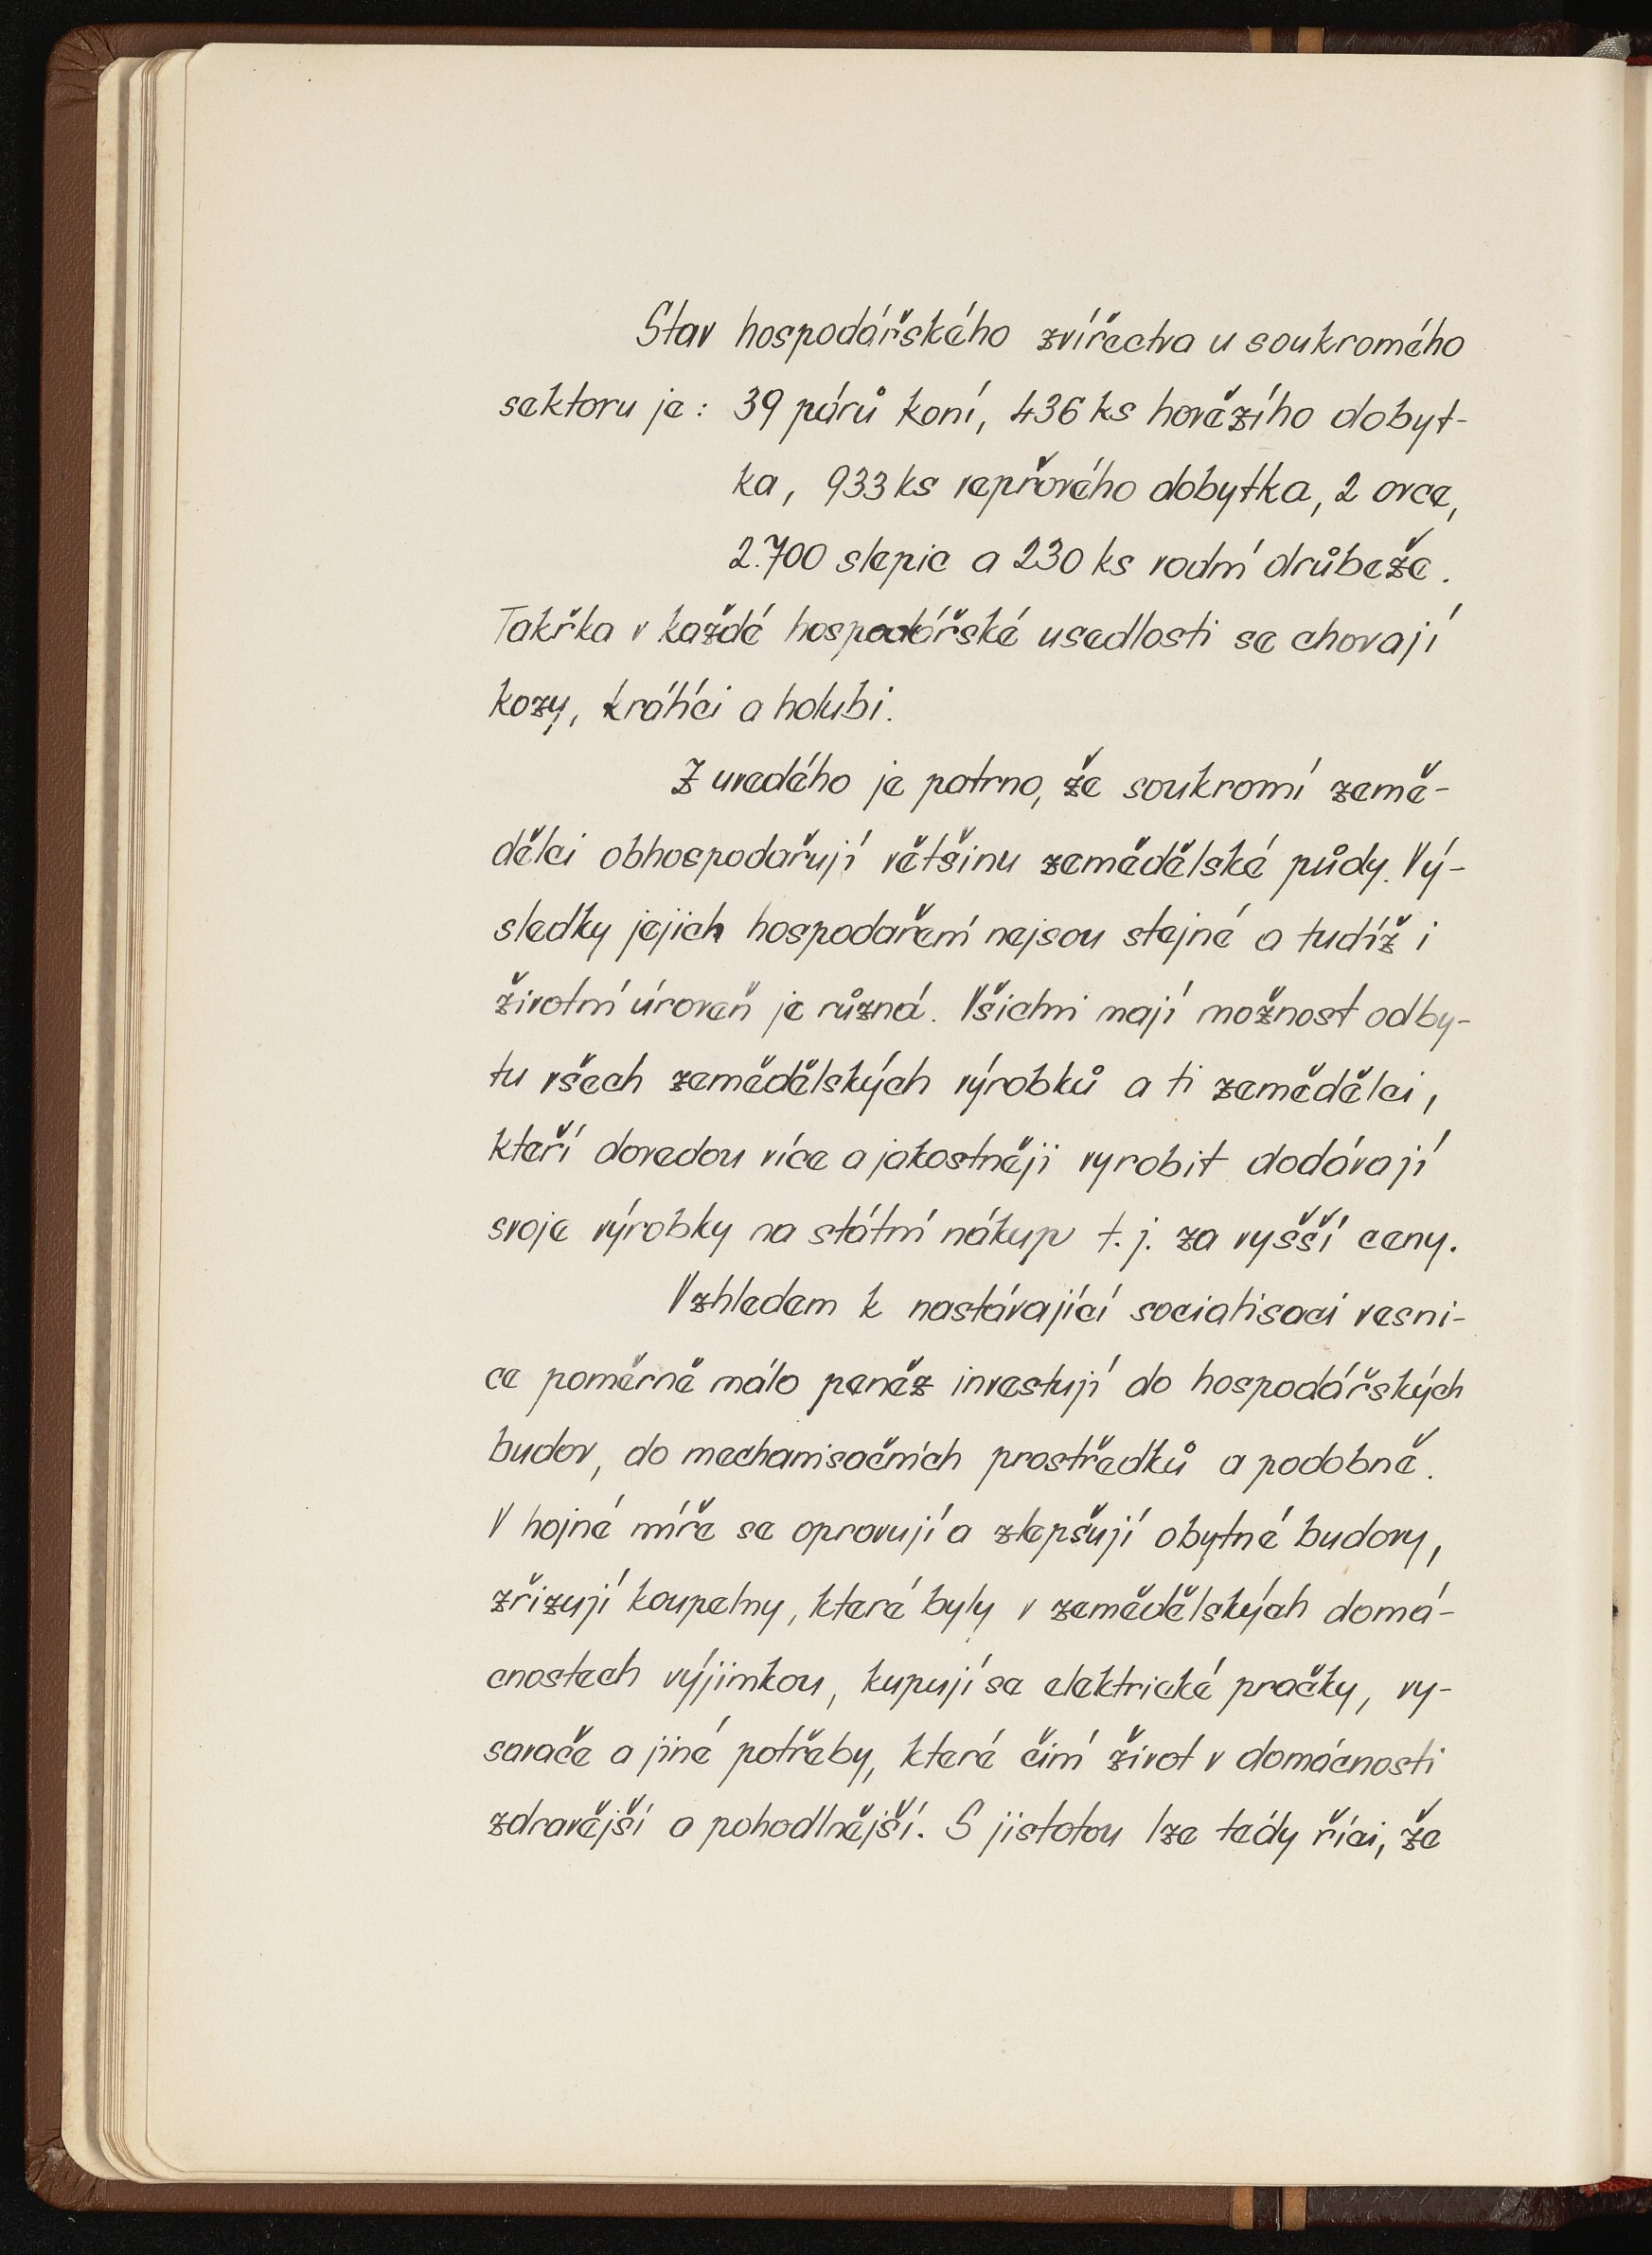 Stav hospodářského zvířectva u soukromého
sektoru je: 39 párů koní, 436 ks hovězího dobyt-
ka, 933 ks vepřového dobytka, 2 ovce,
2.700 slepic a 230 ks vodní drůbeže.
Takřka v každé hospodářské usedlosti se chovají
kozy, králíci a holubi.
Z uvedého je patrno, že soukromí země-
dělci obhospodařují většinu zemědělské půdy. Vý-
sledky jejich hospodaření nejsou stejné a tudíž i
životní úroveň je různá. Všichni mají možnost odby-
tu všech zemědělských výrobků a ti zemědělci,
kteří dovedou více a jakostněji vyrobit dodávají
svoje výrobky na státní nákup t. j. za vyšší ceny.
Vzhledem k nastávající socialisaci vesni-
ce poměrně málo peněz investují do hospodářských
budov, do mechanisačních prostředků a podobně.
V hojné míře se opravují a zlepšují obytné budovy,
zřizují koupelny, které byly v zemědělských domá-
cnostech výjimkou, kupují se elektrické pračky, vy-
savače a jiné potřeby, které činí život v domácnosti
zdravější a pohodlnější. S jistotou lze tédy říci, že